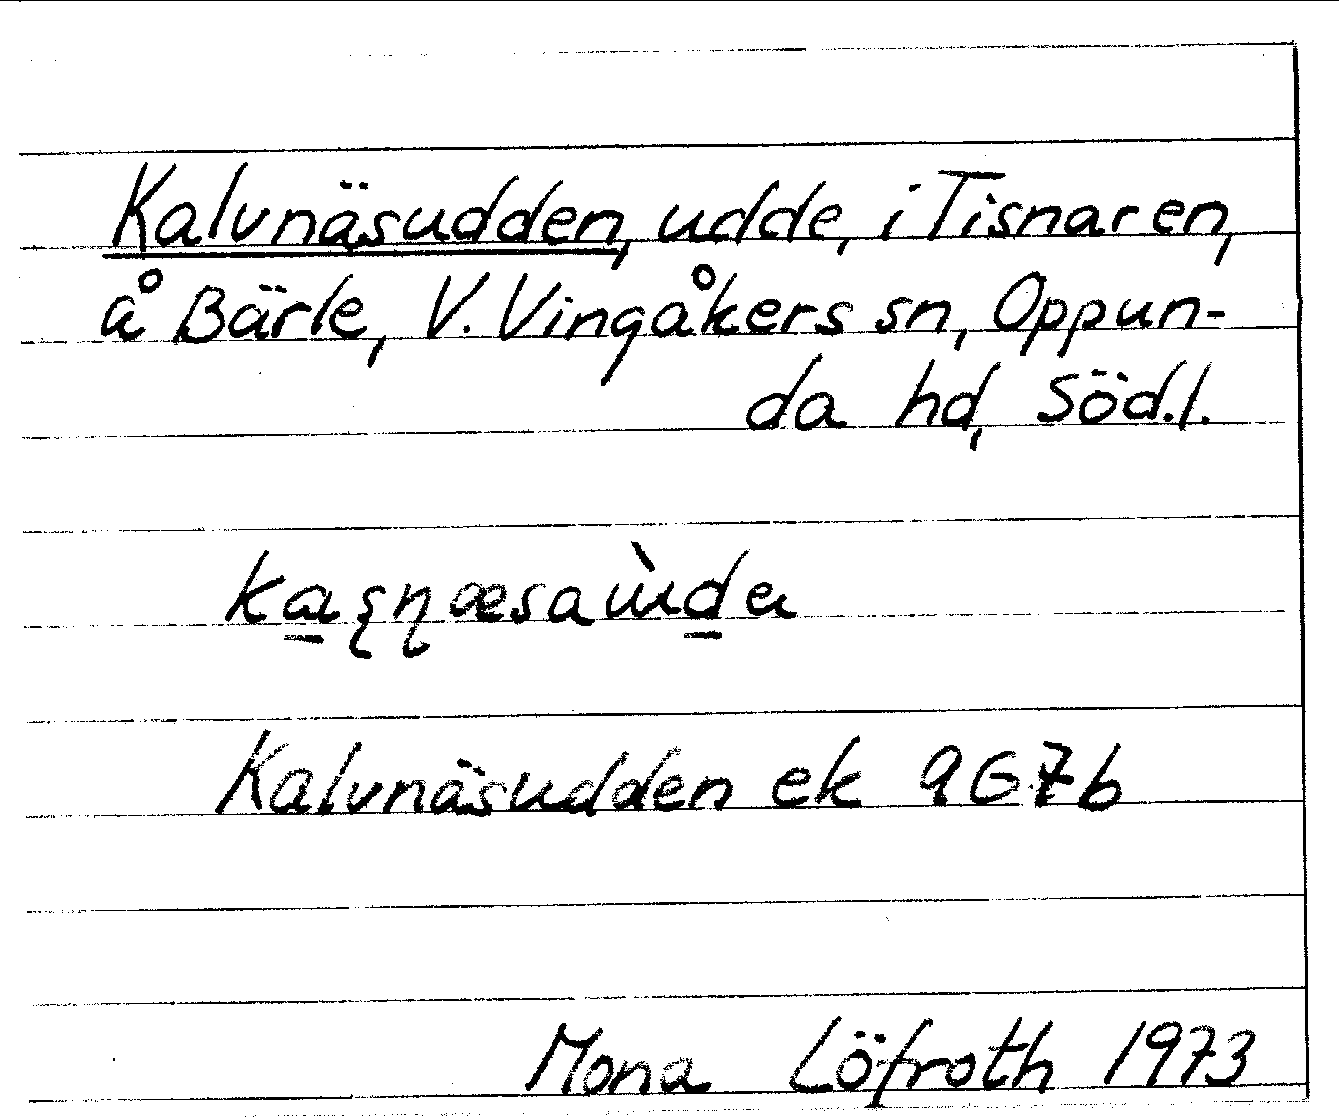 Kalvnäsudden, udde, i Tisnaren,
å Bärle, V. Vingåkers sn, Oppun-
da hd, Söd.l.
Kalvnäsudden ek 9G7b
Mona Löfroth 1973